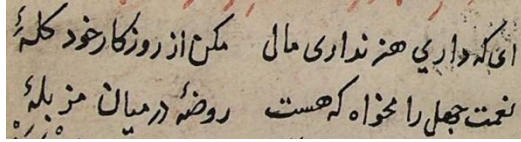 ای که داري هنر نداری مال مکن از روزکار خود کلهٔ
نعمت جهل را مخواه که هست روضهٔ در میان مزبلهٔ